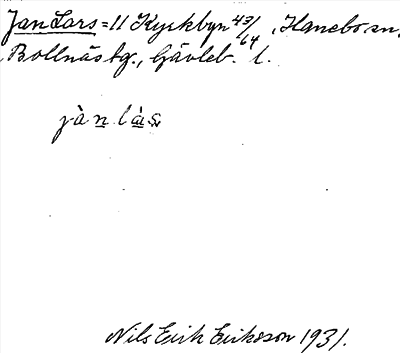 Jan Lars = 11 Kyrkbyn 43/64, Hanebo sn,
Bollnäs tg., Gävleb. l.
jàn làs
Nils Erik Eriksson 1931.